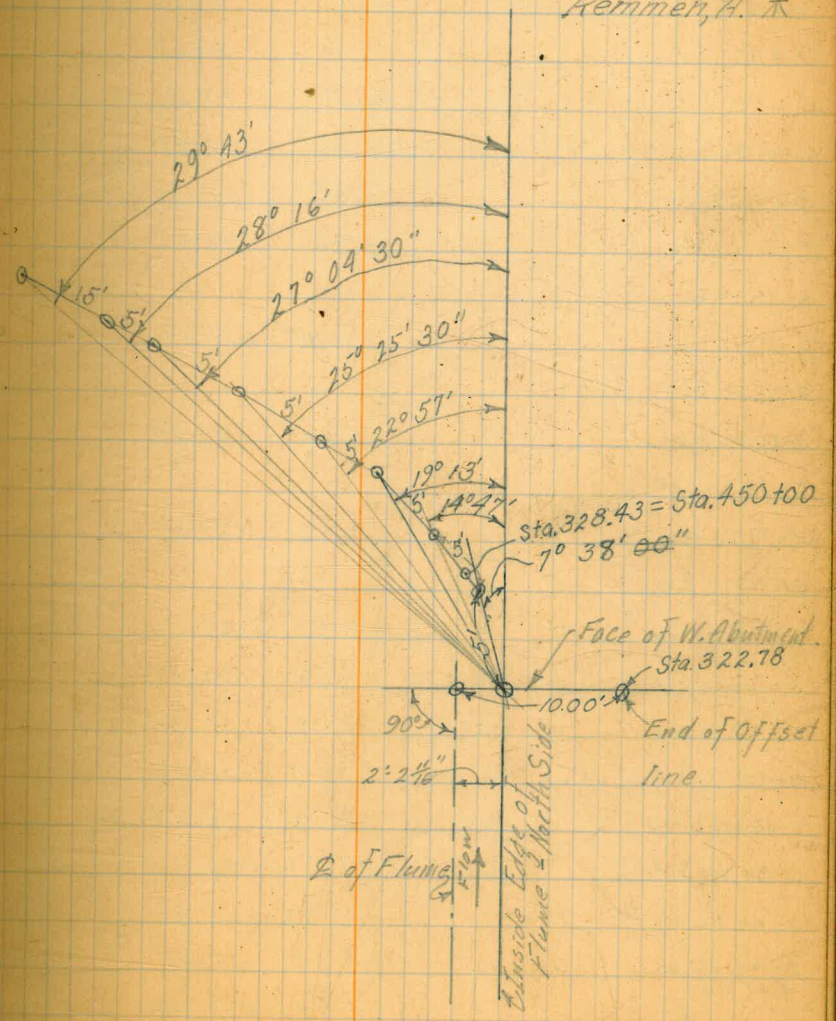 Kemmen, H. ⊼
29° 43'
28° 16'
27° 04' 30"
25° 25' 30"
22° 57'
19° 13'
14° 47'
15'
5'
5'
5'
5'
5'
5'
5'
Sta. 328.43 = Sta. 450+00
7° 38' 00"
Face of W. Abutment
Sta. 322.78
10.00'
90°
End of Offset
line
2'-2 11/16"
℄ of Flume
Flow
Inside Edge of
Flume North Side